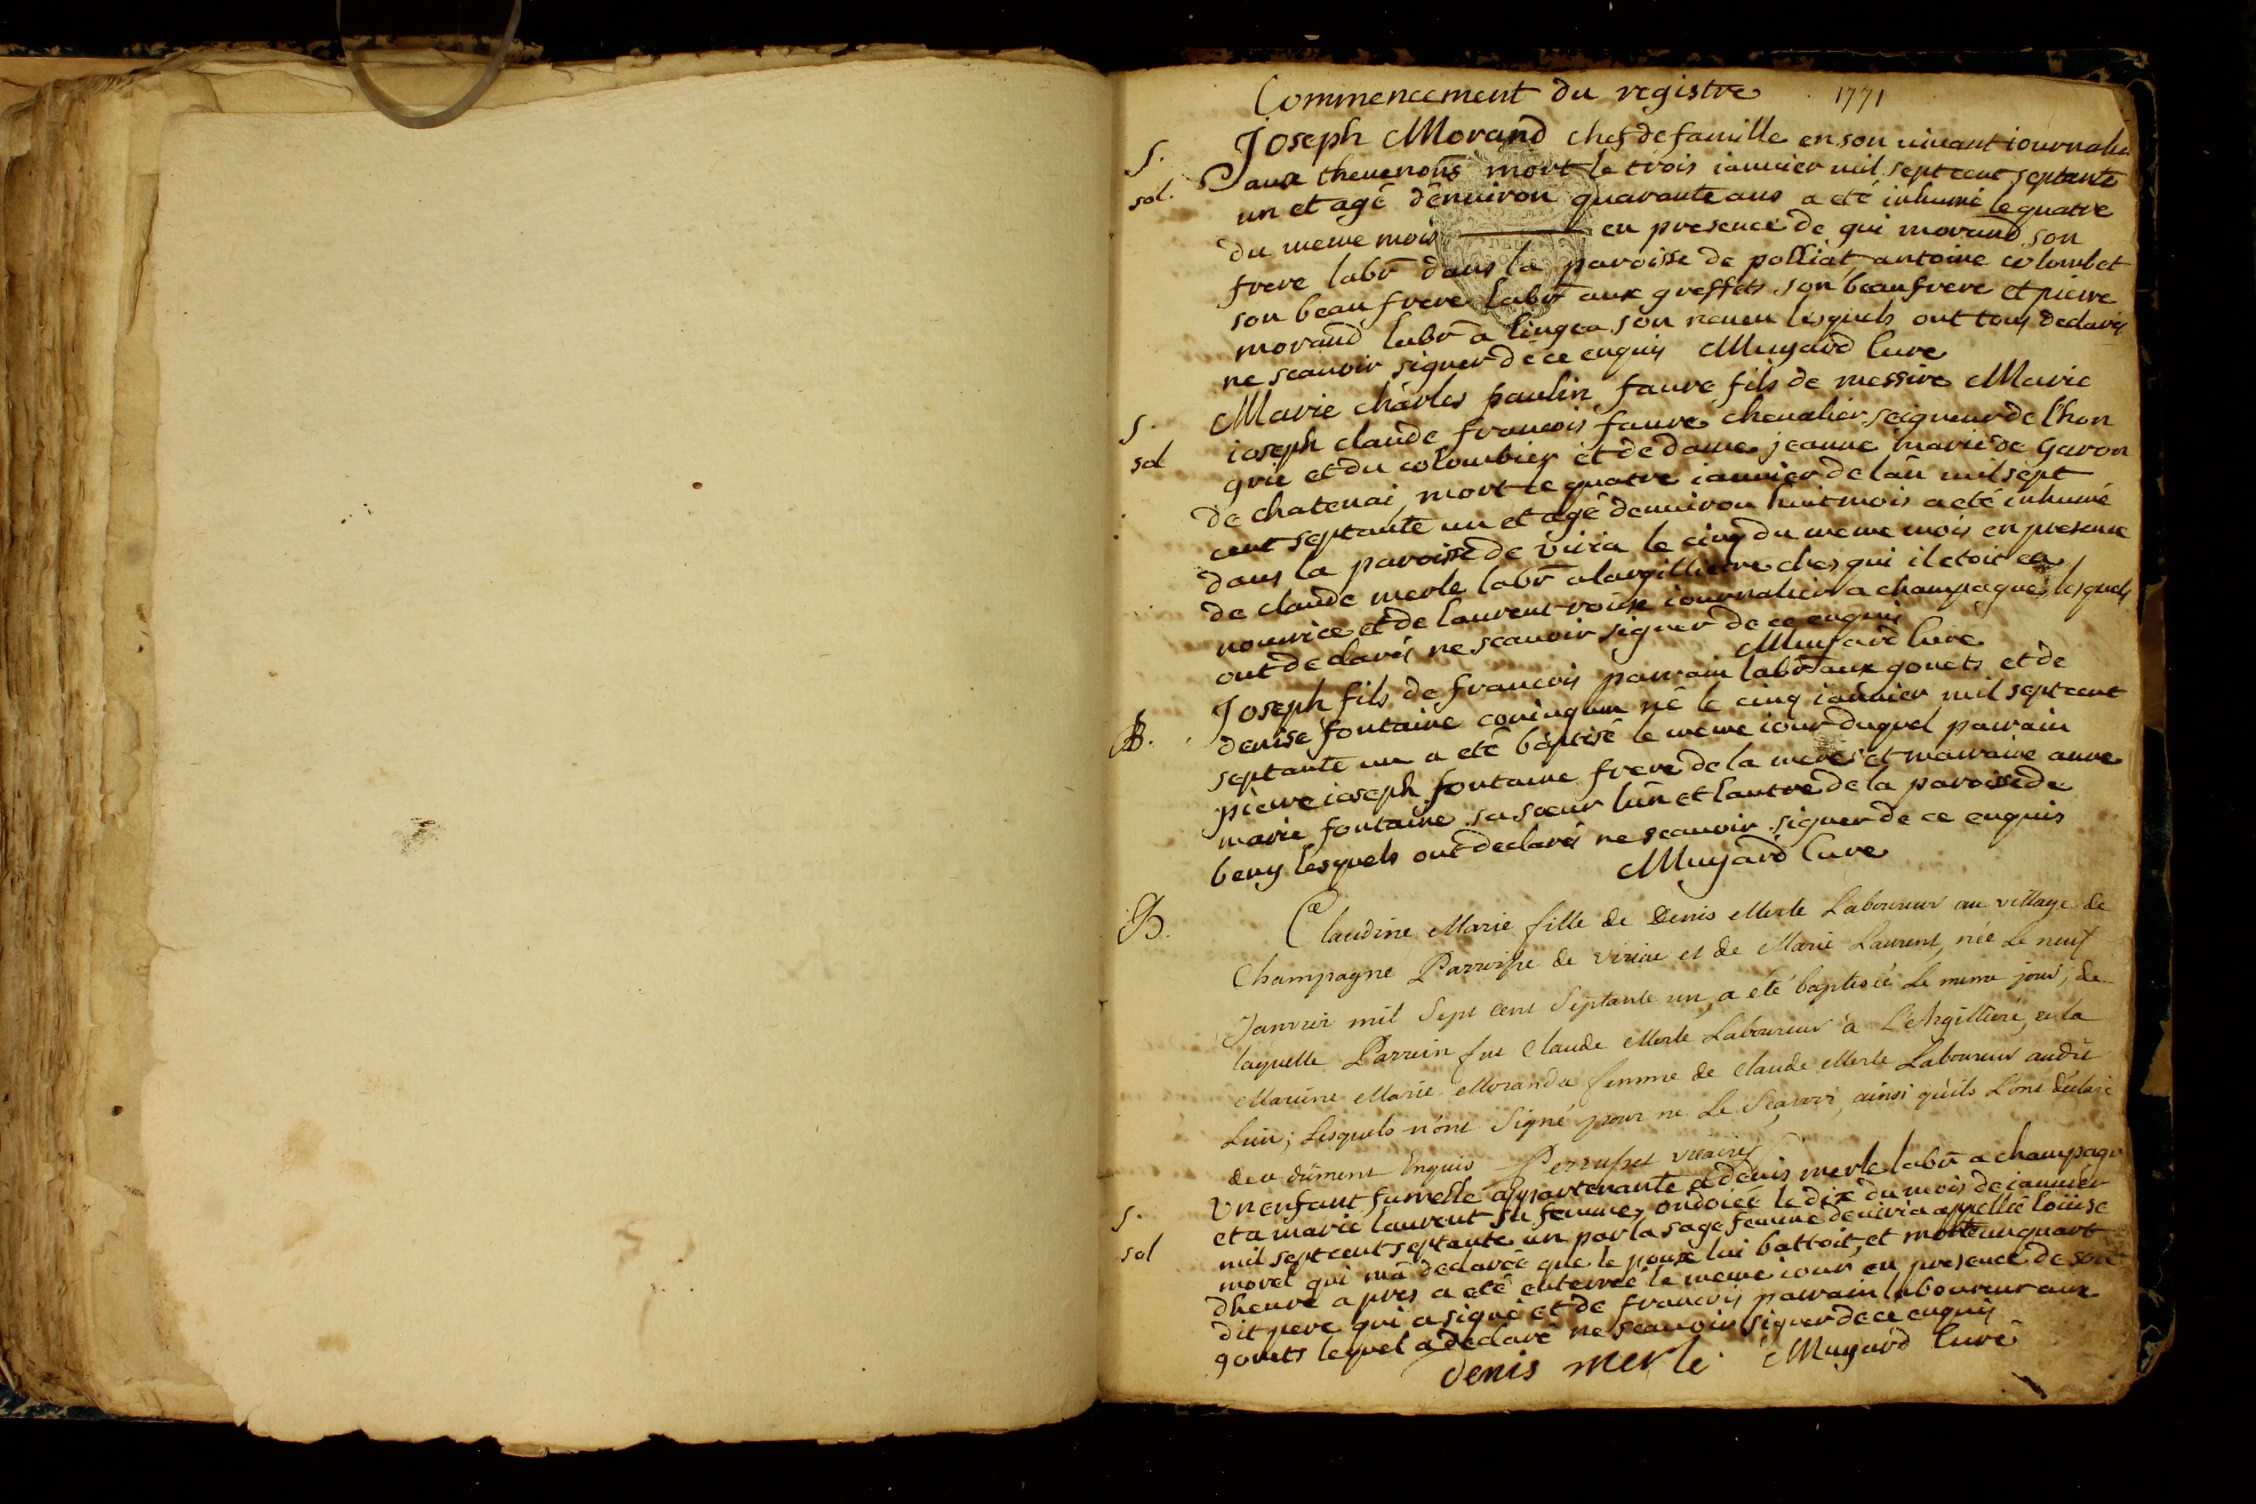 Commencement du registre 1771
S. Joseph Morand chef de famille en son vivant iournalier
sol. aux thevenons mort le trois ianvier mil sept cent septante
un et agé d'environ quarante ans a eté inhumé le quatre
du meme mois en presence de gui morand son
frere labr dans la paroisse de polliat, antoine colombet
son beau frere labr aux greffets son beaufrere et pierre
morand labr a lingea son neveu lesquels ont tous declarés
ne scavoir signer de ce enquis Mugard Cure
S. Marie charles paulin favre fils de messire Marie
sol ioseph claude francois favre chevalier seigneur de l'hon
grie et du colombier et de dame jeanne marie de Garon
de chatenai, mort le quatre ianvier de lan mil sept
cent septante un et agé denviron huit mois a eté inhumé
dans la paroisse de viria le cinq du meme mois en presence
de claude merle labr a largilliere ches qui il etoit en
nourice et de laurent iournalier a champagne lesquels
ont declarés ne scavoir signer de ce enquis
Mugard Cure
B. Joseph fils de francois parrain labr aux gonets et de
denise fontaine né le cinq ianvier mil sept cent
septante un a eté baptisé le meme iour duquel parrain
pierre ioseph fontaine frere de la mere et marraine anne
marie fontaine sa soeur lun et lautre de la paroisse de
beny lesquels ont declarés ne scavoir signer de ce enquis
Mugard Cure
B. Claudine Marie fille de Denis Merle Laboureur au village de
Champagne Parroisse de Viriat et de Marie Laurent, née Le neuf
Janvier mil Sept Cent Septante un, a été baptisée Le meme jour, de
laquelle Parrein fut Claude Merle Laboureur à L'Argilliere, et la
Mareine Marie Moranda femme de Claude Merle Laboureur audit
Lieu; Lesquels n'ont Signé pour ne Le Scavoir, ainsi qu'ils L'ont déclaré
de ce dûment Enquis Perrusset vicaire
S. Un enfant fumelle appartenante a denis merle labr a champagne
et a marie laurent sa femme, ondoiée le dix du mois de ianvier
sol mil sept cent septante un par la sage femme de viria appellée loüise
morel qui ma declarée que le poux lui battoit, et morte un quart
dheure apres a eté enterrée le meme iour en presence de son
dit pere qui a signé et de francois parrain laboureur aux
gonets lequel a declaré ne scavoir signer de ce enquis
denis merle Mugard Curé